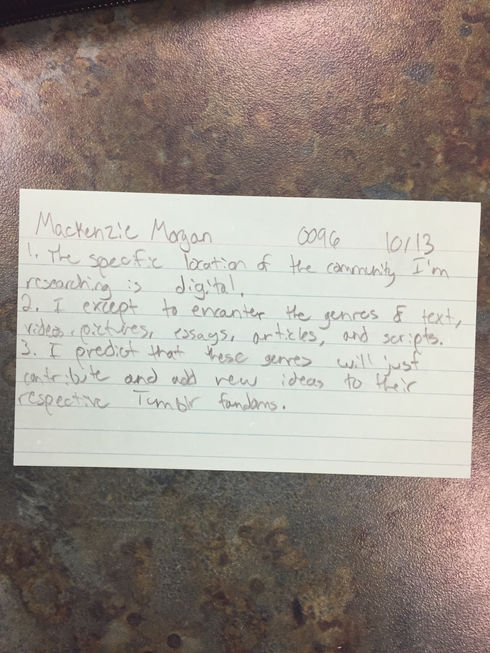 Mackenzie Morgan 0096 10/13
1. The specific location of the community I'm
researching is digital.
2. I except to encanter the genres of text,
video, pictures, essays, articles, and scripts.
3. I predict that these genres will just
contribute and add new ideas to their
respective Tumblr fandoms.